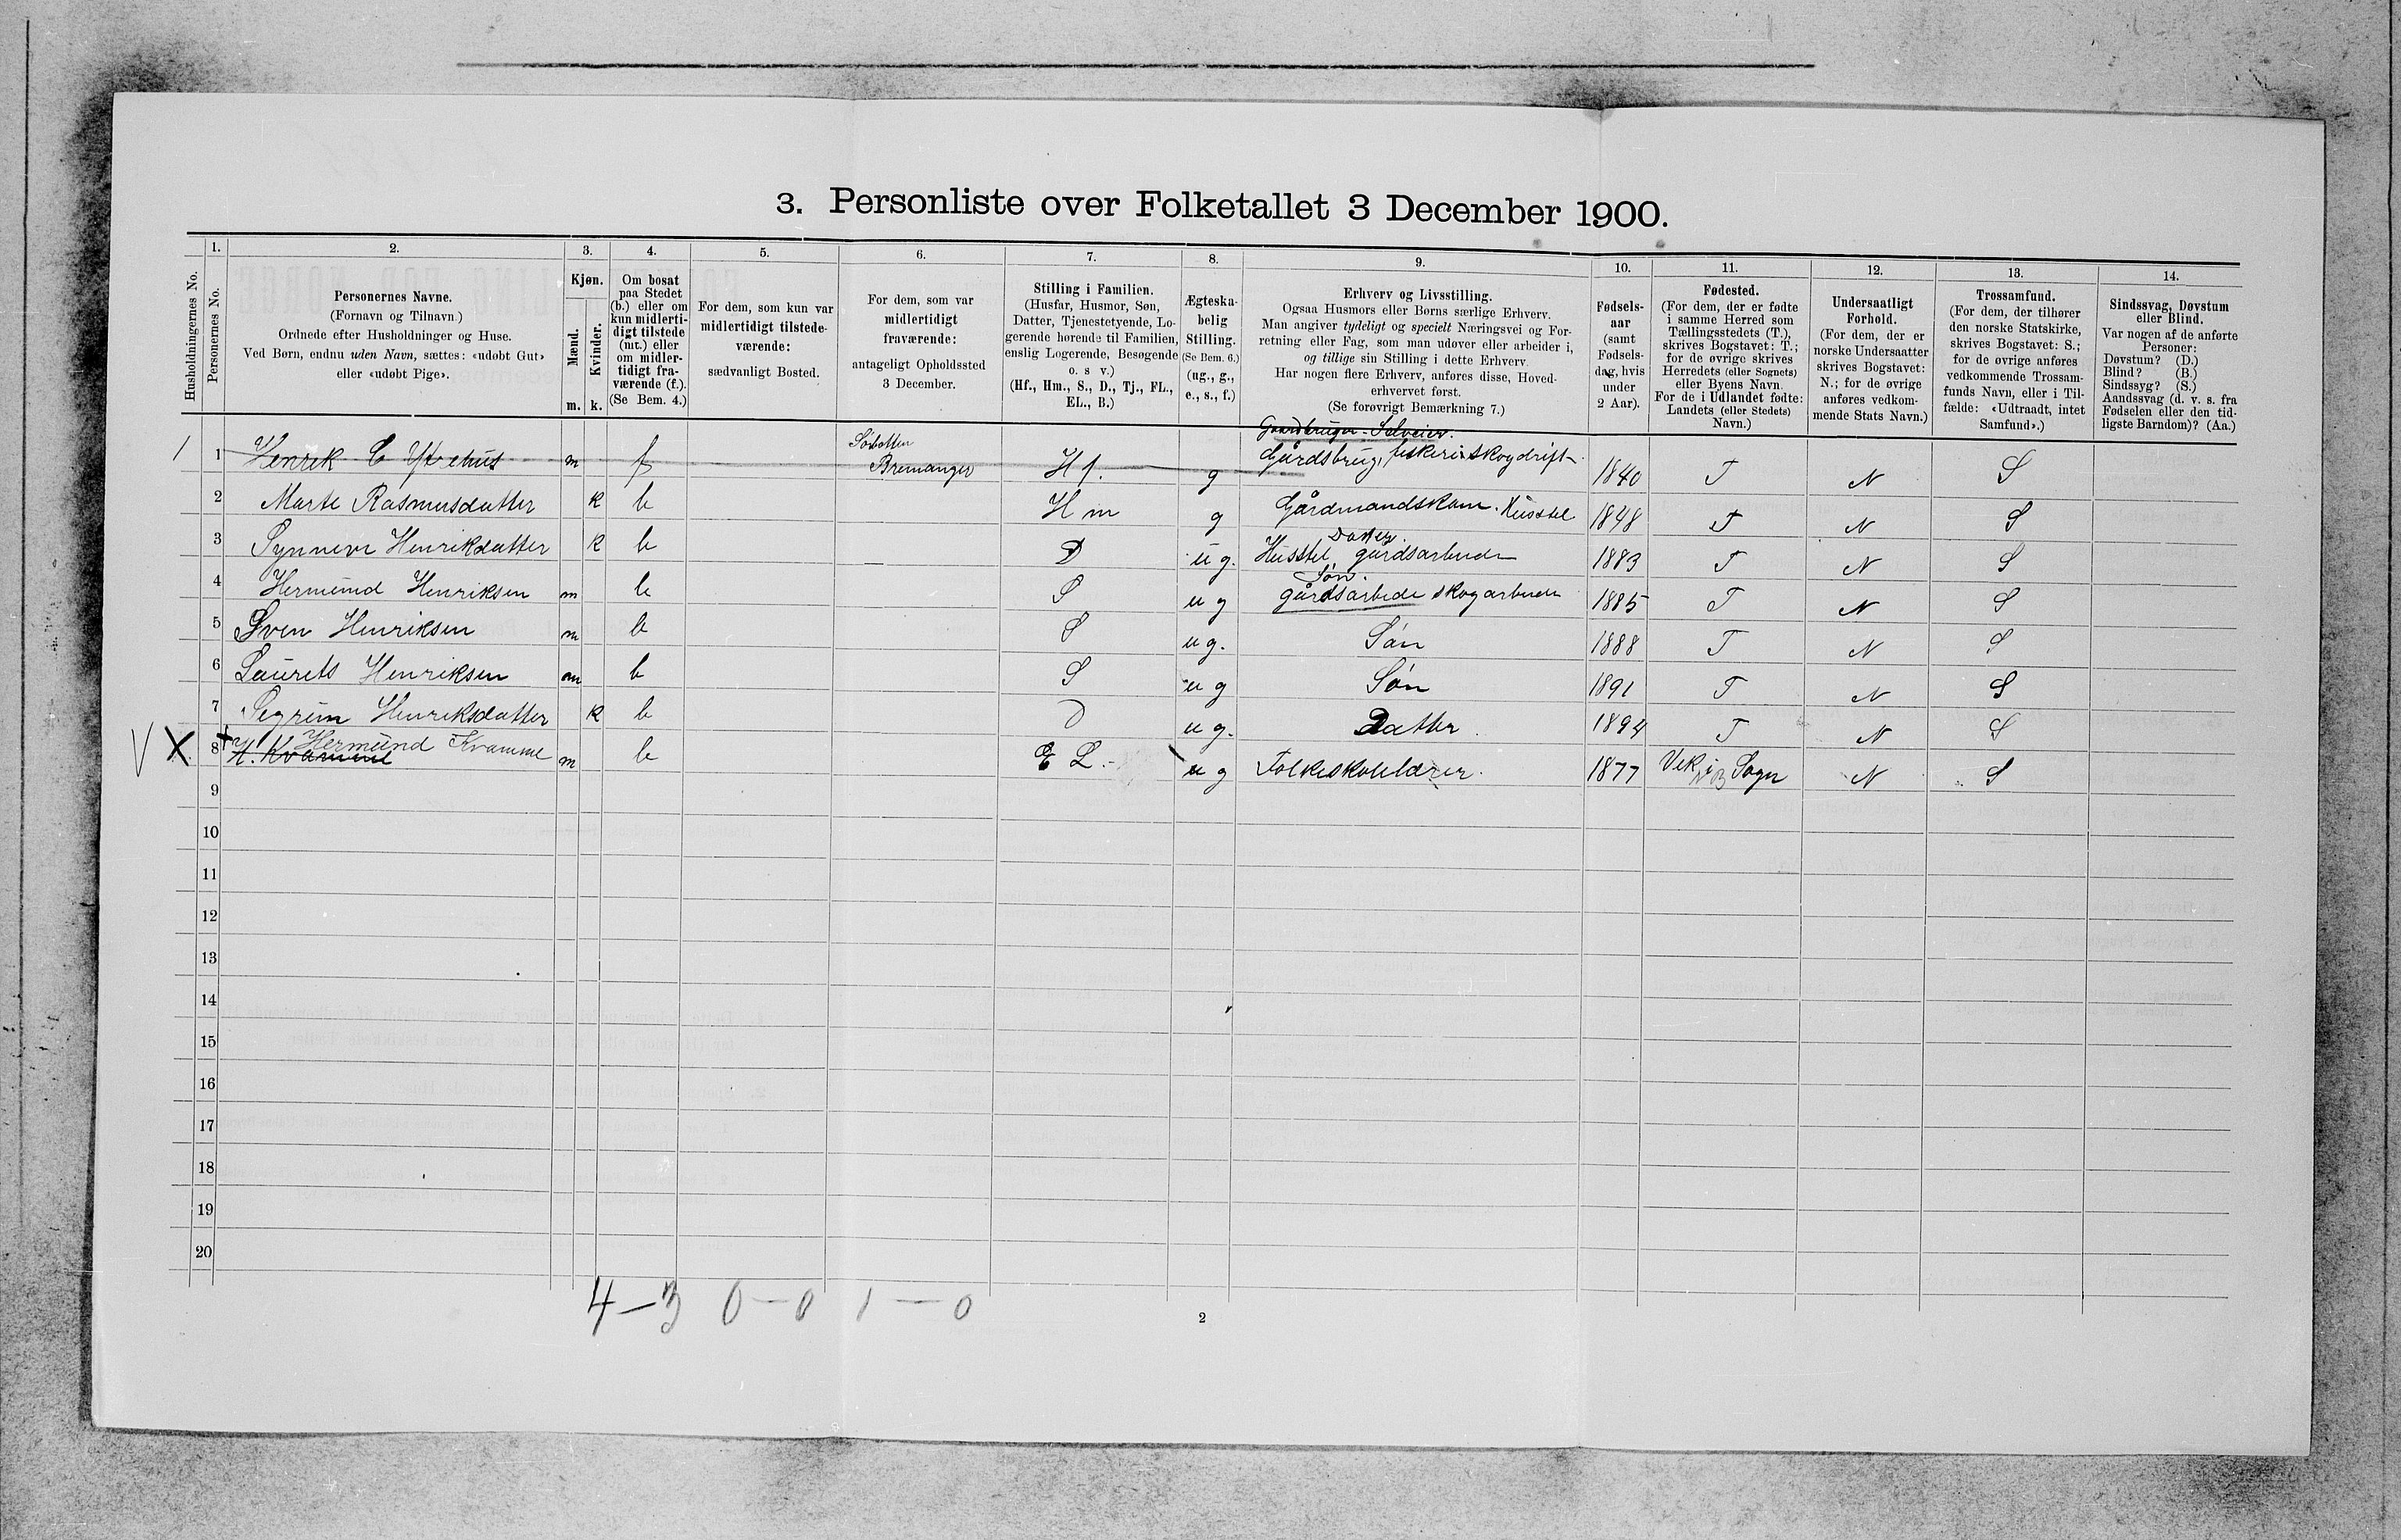 3. Personliste over Folketallet 3 December 1900.
Husholdningernes No.
1.
Personernes No.
2.
Personernes Navne.
(Fornavn og Tilnavn.)
Ordnede efter Husholdninger og Huse.
Ved Børn, endnu uden Navn, sættes: «udøbt Gut»
eller «udøbt Pige».
3.
Kjøn.
Mænd.
Kvinder.
m.
k.
4.
Om bosat
paa Stedet
(b.) eller om
kun midlerti-
digt tilstede
(mt.) eller
om midler-
tidigt fra-
værende (f.).
(Se Bem. 4.)
5.
For dem, som kun var
midlertidigt tilstede-
værende:
sædvanligt Bosted.
6.
For dem, som var
midlertidigt
fraværende:
antageligt Opholdssted
3 December.
7.
Stilling i Familien.
(Husfar, Husmor, Søn,
Datter, Tjenestetyende, Lo-
gerende hørende til Familien,
enslig Logerende, Besøgende
o. s v.)
(Hf., Hm., S., D., Tj., FL.,
EL., B.)
8.
Ægteska-
belig
Stilling.
(Se Bem. 6.)
(ug., g.,
e., s., f.)
9.
Erhverv og Livsstilling.
Ogsaa Husmors eller Børns særlige Erhverv.
Man angiver tydeligt og specielt Næringsvei og For-
retning eller Fag, som man udøver eller arbeider i,
og tillige sin Stilling i dette Erhverv.
Har nogen flere Erhverv, anføres disse, Hoved-
erhvervet først.
(Se forøvrigt Bemærkning 7.)
10.
Fødsels-
aar
(samt
Fødsels-
dag, hvis
under
2 Aar).
11.
Fødested.
(For dem, der er fødte
i samme Herred som
Tællingsstedets (T.),
skrives Bogstavet: T.;
for de øvrige skrives
Herredets (eller Sognets)
eller Byens Navn.
For de i Udlandet fødte:
Landets (eller Stedets)
Navn.)
12.
Undersaatligt
Forhold.
(For dem, der er
norske Undersaatter
skrives Bogstavet:
N.; for de øvrige
anføres vedkom-
mende Stats Navn.)
13.
Trossamfund.
(For dem, der tilhører
den norske Statskirke,
skrives Bogstavet: S.;
for de øvrige anføres
vedkommende Trossam-
funds Navn, eller i Til-
fælde: «Udtraadt, intet
Samfund».)
14.
Sindssvag, Døvstum
eller Blind.
Var nogen af de anførte
Personer:
Døvstum? (D.)
Blind? (B.)
Sindssyg? (S.)
Aandssvag (d. v. s. fra
Fødselen eller den tid-
ligste Barndom)? (Aa.)
Gaardbruger. Selveier.
1 1 Henrik C Ytrehus m f Bremanger Hf. g Gårdsbrug, fiskeri skogdrift 1840 T N S
2 Marte Rasmusdatter k b Hm g Gårdmandskone. Husstel 1848 T N S
Datter.
3 Synneve Henrikdatter k b D ug. Husstel gårdsarbeide 1883 T N S
Søn.
4 Hermund Henriksen m b S ug gårdsarbeide skogarbeide 1885 T N S
5 Sven Henriksen m b S ug. Søn 1888 T N S
6 Laurets Henriksen m b S ug Søn 1891 T N S
7 Segrim Henriksdatter k b D ug. Datter 1894 T N S
Hermund Kvamme
X 8 H. Kvamme m b E L. ug Folkeskolelærer. 1877 Vik i Sogn N S
9
10
11
12
13
14
15
16
17
18
19
20
4 — 3 0 — 0 1 — 0
2